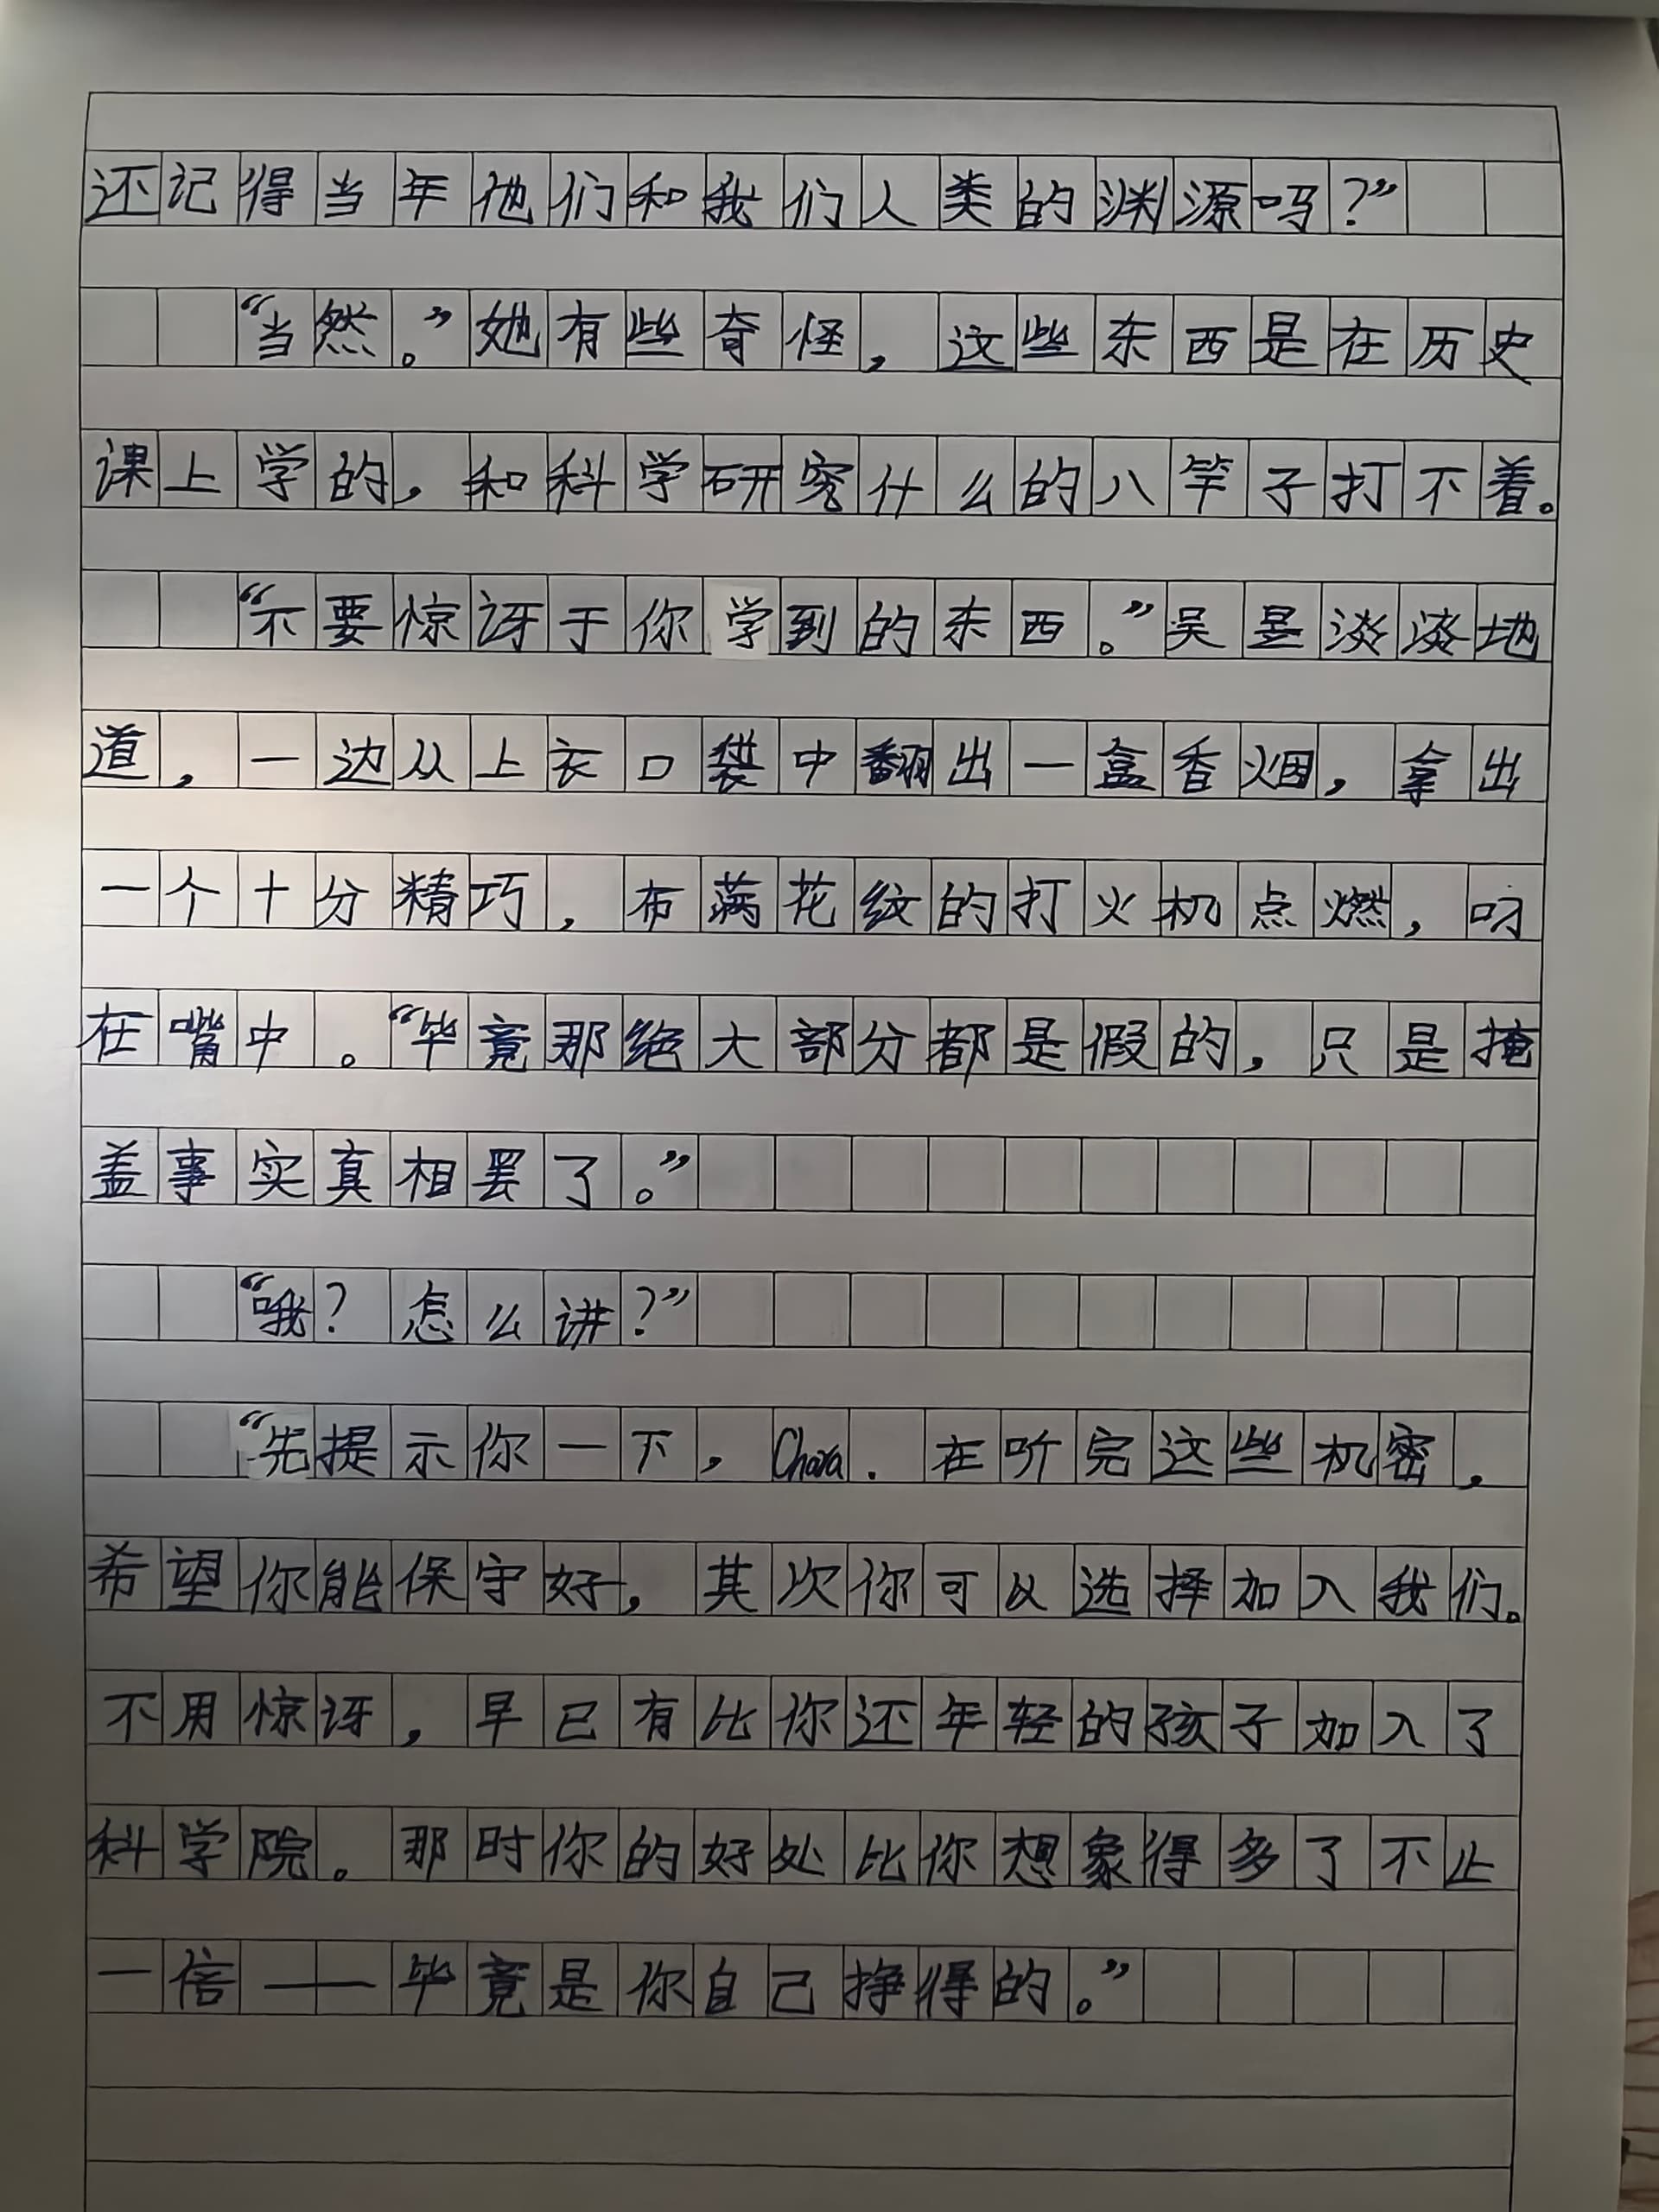 还记得当年他们和我们人类的渊源吗？”
“当然。”她有些奇怪，这些东西是在历史
课上学的，和科学研究什么的八竿子打不着。
“不要惊讶于你学到的东西。”吴昱淡淡地
道，一边从上衣口袋中翻出一盒香烟，拿出
一个十分精巧，布满花纹的打火机点燃，叼
在嘴中。“毕竟那绝大部分都是假的，只是掩
盖事实真相罢了。”
“哦？怎么讲？”
“先提示你一下，Chara．在听完这些机密，
希望你能保守好，其次你可以选择加入我们。
不用惊讶，早已有比你还年轻的孩子加入了
科学院。那时你的好处比你想象得多了不止
一倍——毕竟是你自己挣得的。”